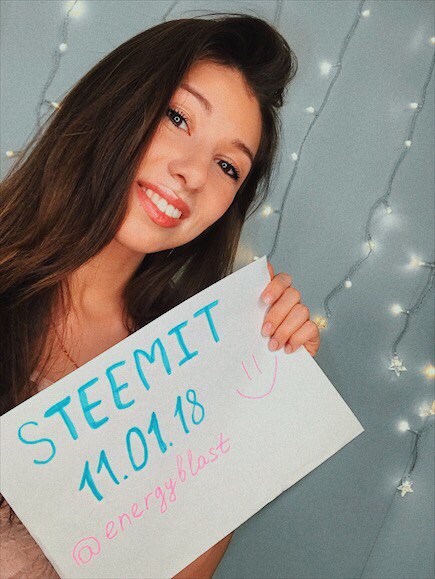 STEEMIT
11.01.18
@energyblast